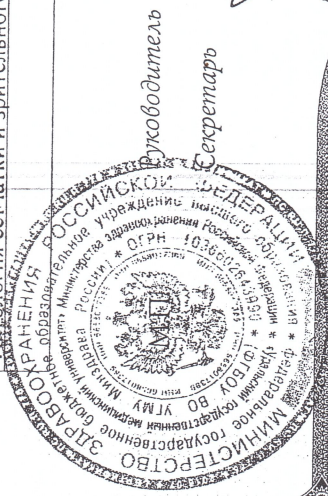 сетчатки и зрительного
Руководитель
Секретарь
МИНИСТЕРСТВО ЗДРАВООХРАНЕНИЯ РОССИЙСКОЙ ФЕДЕРАЦИИ
* Федеральное государственное бюджетное образовательное учреждение высшего образования
* «Уральский государственный медицинский университет» Министерства здравоохранения Российской Федерации
* (ФГБОУ ВО УГМУ Минздрава России) * ОГРН
М.П.